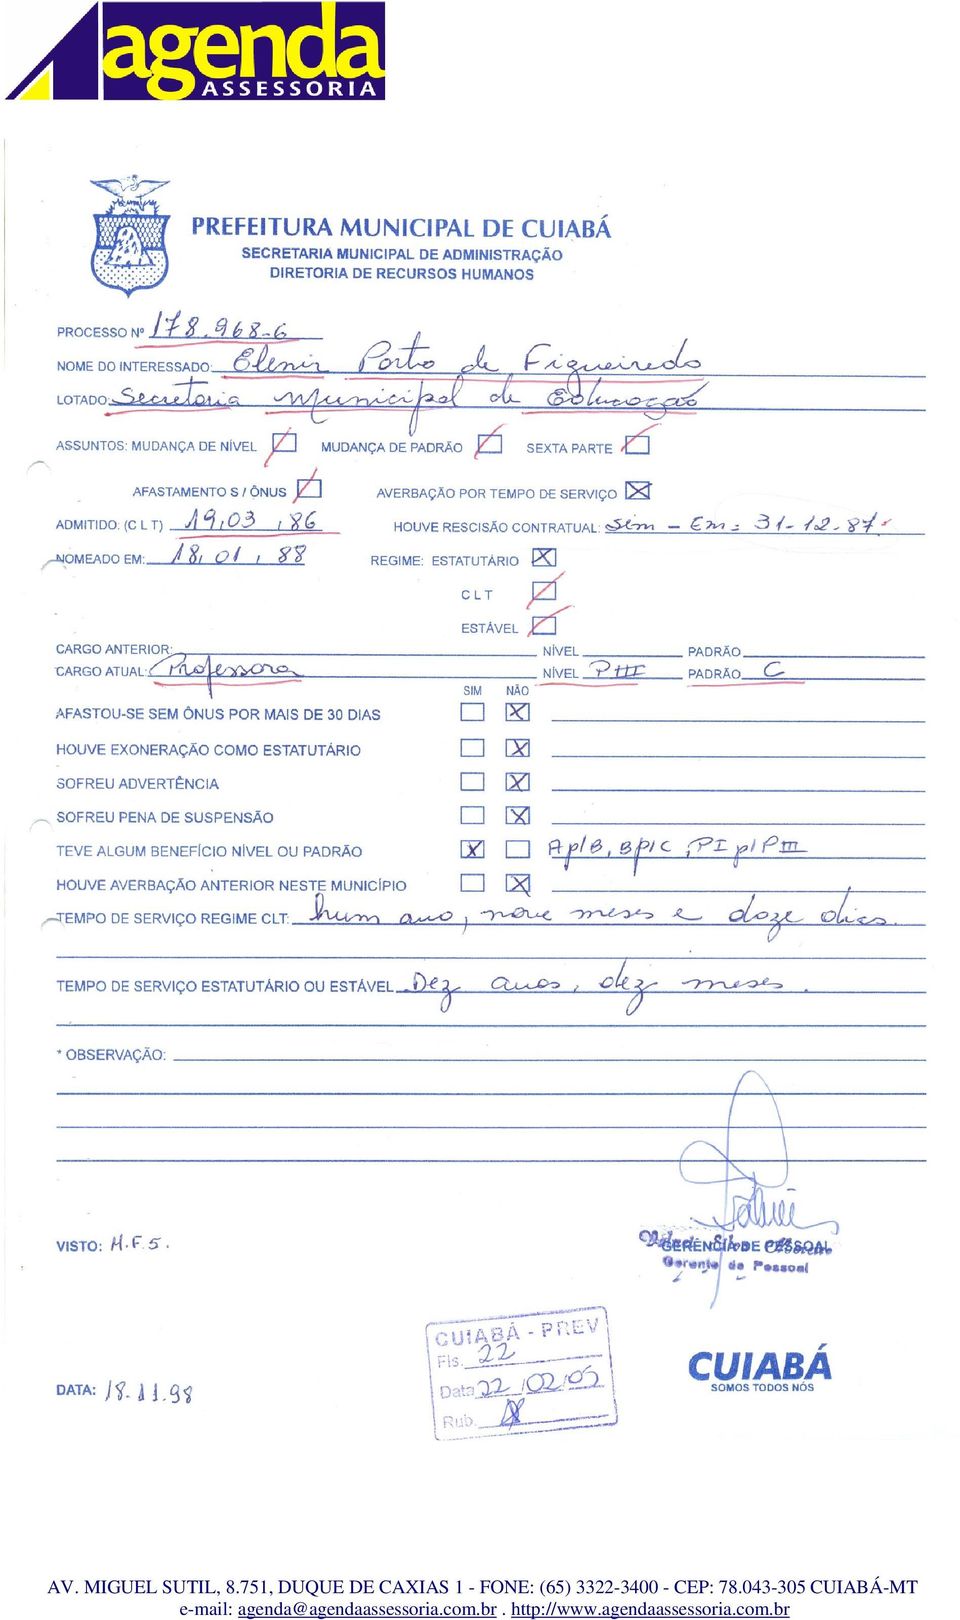 agenda
ASSESSORIA
PREFEITURA MUNICIPAL DE CUIABÁ
SECRETARIA MUNICIPAL DE ADMINISTRAÇÃO
DIRETORIA DE RECURSOS HUMANOS
PROCESSO Nº 178.968-6
NOME DO INTERESSADO: Elenir Porto de Figueiredo
LOTADO: Secretaria Municipal de Educação
ASSUNTOS: MUDANÇA DE NÍVEL MUDANÇA DE PADRÃO SEXTA PARTE
AFASTAMENTO S / ÔNUS AVERBAÇÃO POR TEMPO DE SERVIÇO X
ADMITIDO: (C L T) 19,03,86 HOUVE RESCISÃO CONTRATUAL: Sim - Em: 31-12-87.
NOMEADO EM: 18,01,88 REGIME: ESTATUTÁRIO X
C L T
ESTÁVEL
CARGO ANTERIOR: NÍVEL PADRÃO
CARGO ATUAL: Professora NÍVEL PIII PADRÃO C
SIM NÃO
AFASTOU-SE SEM ÔNUS POR MAIS DE 30 DIAS X
HOUVE EXONERAÇÃO COMO ESTATUTÁRIO X
SOFREU ADVERTÊNCIA X
SOFREU PENA DE SUSPENSÃO X
TEVE ALGUM BENEFÍCIO NÍVEL OU PADRÃO X A p/B, B p/C, PI p/PIII
HOUVE AVERBAÇÃO ANTERIOR NESTE MUNICÍPIO X
TEMPO DE SERVIÇO REGIME CLT: hum ano, nove meses e doze dias.
TEMPO DE SERVIÇO ESTATUTÁRIO OU ESTÁVEL Dez anos, dez meses.
* OBSERVAÇÃO:
VISTO: M.F.S.
GERÊNCIA DE PESSOAL
Gerente de Pessoal
CUIABÁ - PREV
Fls. 22
Data 22/02/05
Rub.
CUIABÁ
SOMOS TODOS NÓS
DATA: 18.11.98
AV. MIGUEL SUTIL, 8.751, DUQUE DE CAXIAS 1 - FONE: (65) 3322-3400 - CEP: 78.043-305 CUIABÁ-MT
e-mail: agenda@agendaassessoria.com.br . http://www.agendaassessoria.com.br